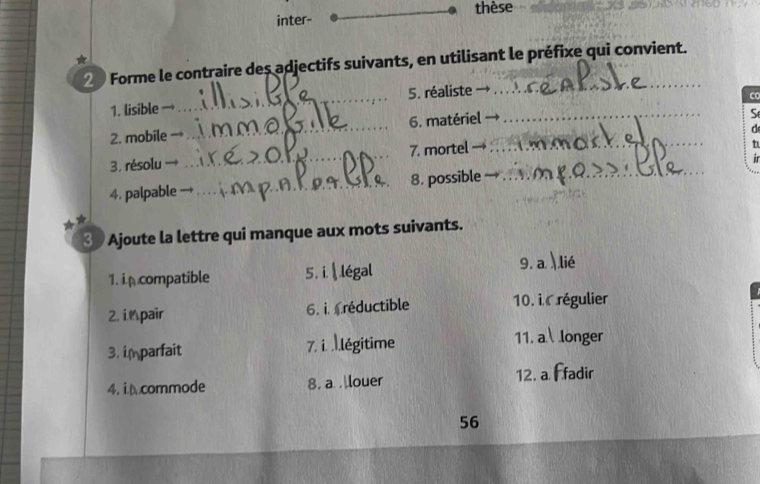 inter- thèse
2 Forme le contraire des adjectifs suivants, en utilisant le préfixe qui convient.
1. lisible → illisible 5. réaliste → iréaliste
2. mobile → immobille 6. matériel →
3. résolu → irésolu 7. mortel → immortel
4. palpable → impalpable 8. possible → impossible
3 Ajoute la lettre qui manque aux mots suivants.
1. incompatible 5. illégal 9. allié
2. impair 6. irréductible 10. irrégulier
3. imparfait 7. illégitime 11. allonger
4. incommode 8. allouer 12. affadir
56